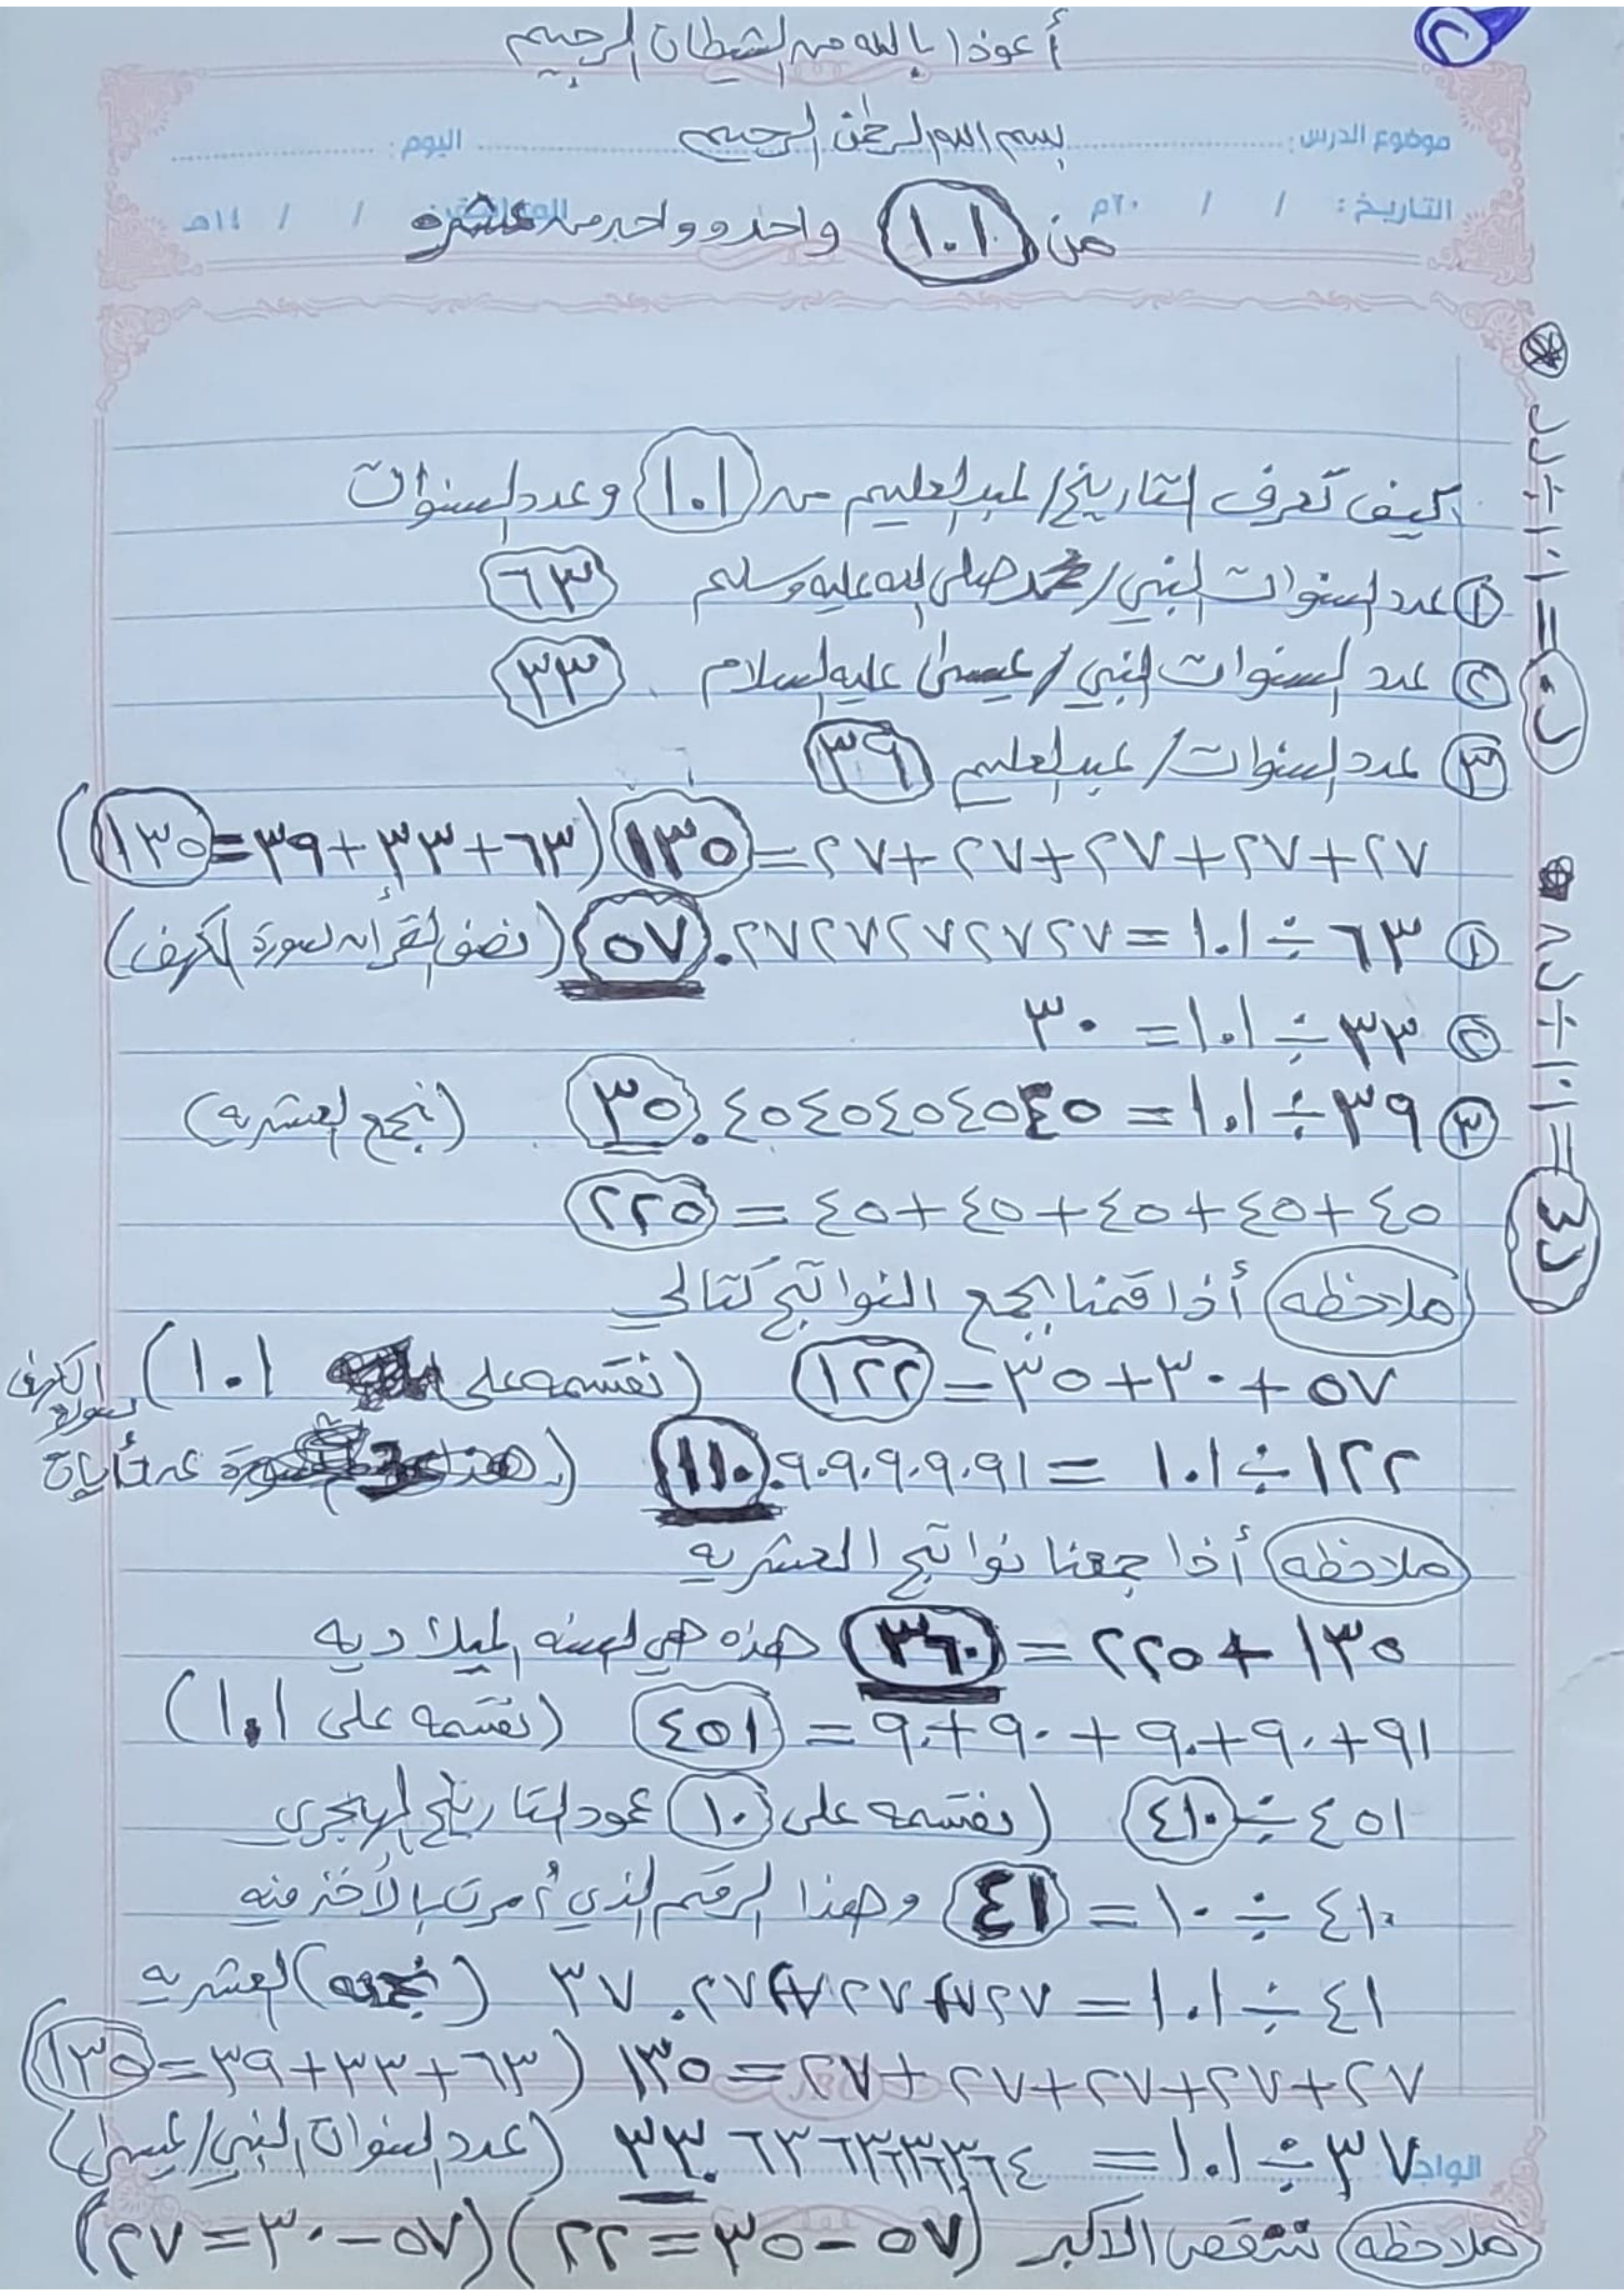 ٢
أعوذا بالله من الشيطان الرجيم
موضوع الدرس: بسم الله الرحمن الرحيم اليوم:
التاريخ: / / ٢٠م الموافق: / / ١٤هـ
من ١.١ واحد وواحد من عشره
كيف تعرف التاريخ/عبدالعليم من ١.١ وعدد السنوات
١ عدد السنوات النبي/محمد صلى الله عليه وسلم ٦٣
٢ عدد السنوات النبي/عيسى عليه السلام ٣٣
٣ عدد السنوات/عبدالعليم ٣٩
٢٧+٢٧+٢٧+٢٧+٢٧=١٣٥ (٦٣+٣٣+٣٩=١٣٥)
١ ٦٣÷١.١=٥٧.٢٧٢٧٢٧٢٧٢٧ (نصف القرأن سورة الكهف)
٢ ٣٣÷١.١=٣٠
٣ ٣٩÷١.١=٣٥.٤٥٤٥٤٥٤٥٤٥ (نجمع العشريه)
٤٥+٤٥+٤٥+٤٥+٤٥=٢٢٥
ملاحظه أذا قمنا بجمع النواتج كتالي
٥٧+٣٠+٣٥=١٢٢ (نقسمه على ١.١)
١٢٢÷١.١=١١٠.٩٠٩٠٩٠٩٠٩١ (هذا عدد أيات سورة الكهف
ملاحظه أذا جمعنا نواتج العشريه
١٣٥+٢٢٥=٣٦٠ هذه هي السنه الميلاديه
٩١+٩٠+٩٠+٩٠+٩٠=٤٥١ (نقسمه على ١.١)
٤٥١÷٤١٠ (نقسمه على ١٠ عمود التاريخ الهجري
٤١٠÷١٠=٤١ وهذا الرقم الذي أمرت بالأخذ منه
٤١÷١.١=٣٧.٢٧٢٧٢٧٢٧٢٧ (نجمع) العشريه
٢٧+٢٧+٢٧+٢٧+٢٧=١٣٥ (٦٣+٣٣+٣٩=١٣٥)
الواجب:
٣٧÷١.١=٣٣.٦٣٦٣٦٣٦٣٦٤ (عدد السنوات النبي/عيسى)
ملاحظه ننقص الاكبر (٥٧-٣٥=٢٢) (٥٧-٣٠=٢٧)